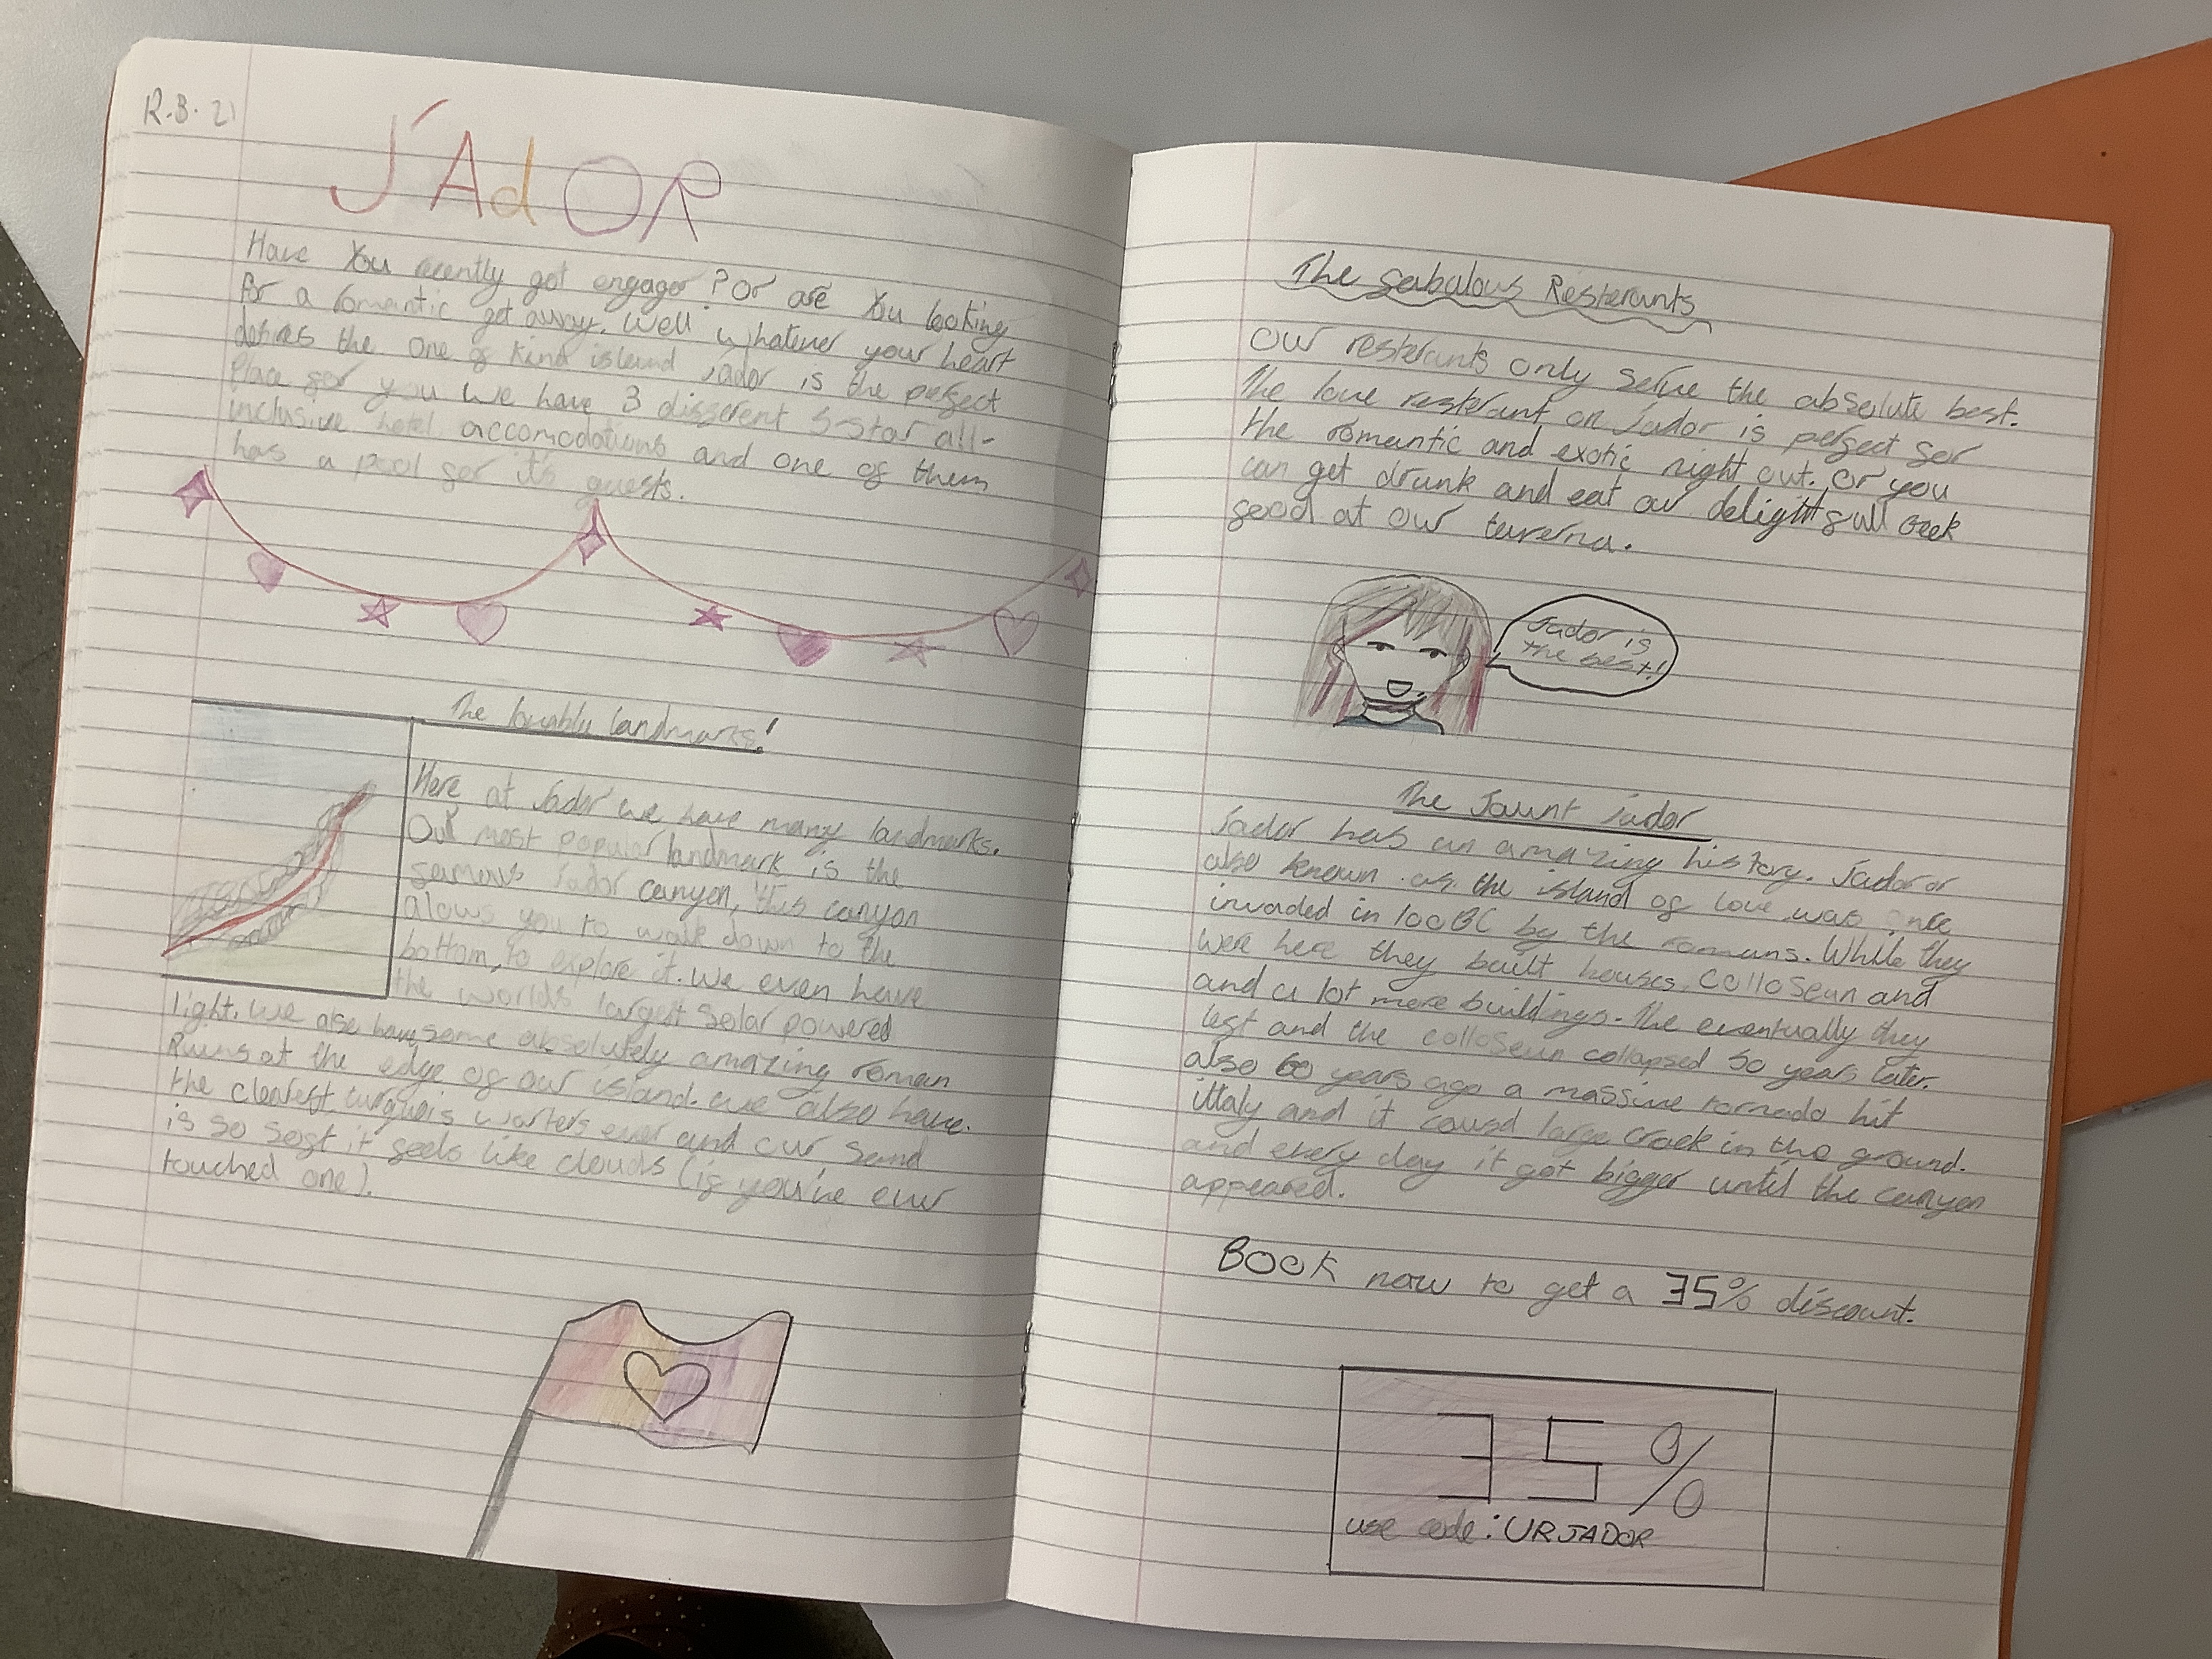 R.B. 21
J'AdOR
Have You recently got engager? Or are You looking
for a romantic get away. Well whatever your heart
desires the one of kind island Jador is the perfect
Place for you we have 3 different 5-star all-
inclusive hotel accomodations and one of them
has a pool for it's guests.
The lovably landmarks!
Here at Jador we have many landmarks.
Our most popular landmark is the
famous Jador canyon, this canyon
alows you to walk down to the
bottom, to explore it. We even have
the worlds largest Solar powered
light. we also have some absolutely amazing roman
Ruins at the edge of our island. we also have
the clearest turquois warters ever and our sand
is so soft it feels like clouds (if you've ever
touched one).
The fabulous Resterants
Our resterants only serve the absolute best.
The love resterant on Jador is perfect for
the romantic and exotic night out. Or you
can get drunk and eat our delightfull Greek
food at our taverna.
Jador is
the best!
The Jaunt Jador
Jador has an amazing history. Jador or
also known as the island of love was once
invaded in 100BC by the romans. While they
were here they built houses, Colloseun and
and a lot more buildings. The eventually they
left and the colloseun collapsed 50 years later.
also 60 years ago a massive tornado hit
ittaly and it causd large crack in the ground.
and every day it got bigger until the canyon
appeared.
BOOK now to get a 35% discount.
35%
use code: URJADOR